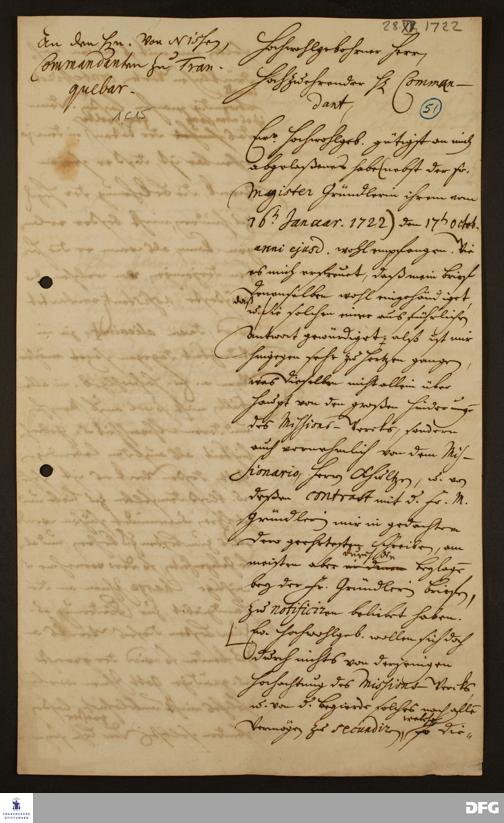 28. XII. 1722
An den Hn. von Nissen,
Commandanten zu Tran-
quebar.
1 C 15
51
Hochwohlgebohrner Herr,
Hochzuehrender H. Comman-
dant,
Ew. Hochwohlgeb. gütigst an mich
abgelaßenes habe (nebst der Fr.
Magister Gründlerin ihrem vom
16t Januar. 1722) den 17t Octob.
anni ejusd. wohl empfangen. Wie
es mich erfreuet, daß mein Brief
Denenselben wohl eingehändiget,
u. Sie solchen einer ausführlichen
Antwort gewürdiget; als ist mir
hingegen sehr zu Hertzen gangen,
was Dieselben nicht allein über-
haupt von den großen Hinderungen
des Missions-Wercks, sondern
auch vornehmlich von dem Mis-
sionario, Herrn Schultzen, u. von
deßen contract mit d. Fr. M.
Gründlerin mir in gedachtem
Dero geehrtesten Schreiben, am
meisten aber durch die Beylage
bey der Fr. Gründlerin Briefe,
zu notificiren beliebet haben.
Ew. Hochwohlgeb. wollen sich doch
durch nichts von derjenigen
Hochachtung des Missions-Wercks
u. von d. Begierde solches nach allem
Vermögen zu secundiren, welche
FRANCKESCHE STIFTUNGEN
DFG